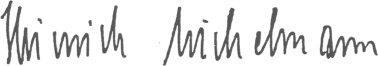 Hinrich Michelmann